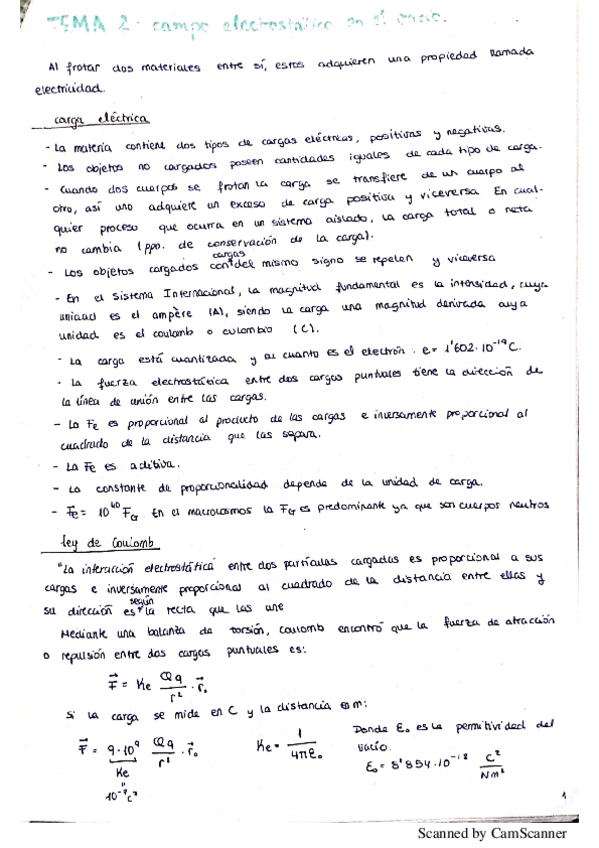 TEMA 2: campo electrostático en el vacío.
Al frotar dos materiales entre sí, estos adquieren una propiedad llamada
electricidad.
carga eléctrica
- La materia contiene dos tipos de cargas eléctricas, positivas y negativas.
- Los objetos no cargados poseen cantidades iguales de cada tipo de carga.
- Cuando dos cuerpos se frotan la carga se transfiere de un cuerpo al
otro, así uno adquiere un exceso de carga positiva y viceversa. En cual-
quier proceso que ocurra en un sistema aislado, la carga total o neta
no cambia (ppo. de conservación de la carga).
- Los objetos cargados con cargas del mismo signo se repelen y viceversa
- En el Sistema Internacional, la magnitud fundamental es la intensidad, cuya
unidad es el ampère (A), siendo la carga una magnitud derivada cuya
unidad es el coulomb o culombio (C).
- La carga está cuantizada y al cuanto es el electrón. e = 1'602·10⁻¹⁹C.
- La fuerza electrostática entre dos cargas puntuales tiene la dirección de
la línea de unión entre las cargas.
- La Fe es proporcional al producto de las cargas e inversamente proporcional al
cuadrado de la distancia que las separa.
- La Fe es aditiva.
- La constante de proporcionalidad depende de la unidad de carga.
- Fe = 10⁴⁰ F_G. En el macrocosmos la F_G es predominante ya que son cuerpos neutros
Ley de Coulomb
"La interacción electrostática entre dos partículas cargadas es proporcional a sus
cargas e inversamente proporcional al cuadrado de la distancia entre ellas y
su dirección es según la recta que las une
Mediante una balanza de torsión, Coulomb encontró que la fuerza de atracción
o repulsión entre dos cargas puntuales es:
F⃗ = Ke Qq/r² · r⃗₀
Si la carga se mide en C y la distancia en m:
F⃗ = 9·10⁹ Qq/r² · r⃗₀ Ke = 1/4πε₀ Donde ε₀ es la permitividad del
vacío.
Ke ε₀ = 8'854·10⁻¹² C²/Nm²
10⁻⁷c²
1
Scanned by CamScanner